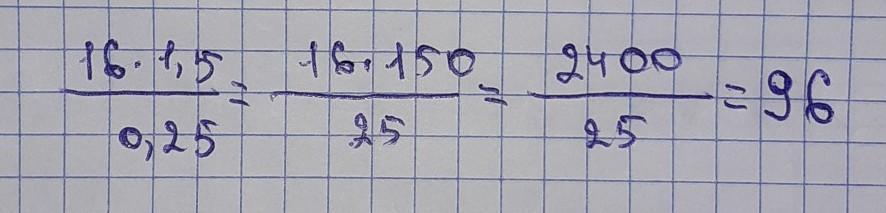 16·1,5/0,25 = 16·150/25 = 2400/25 = 96